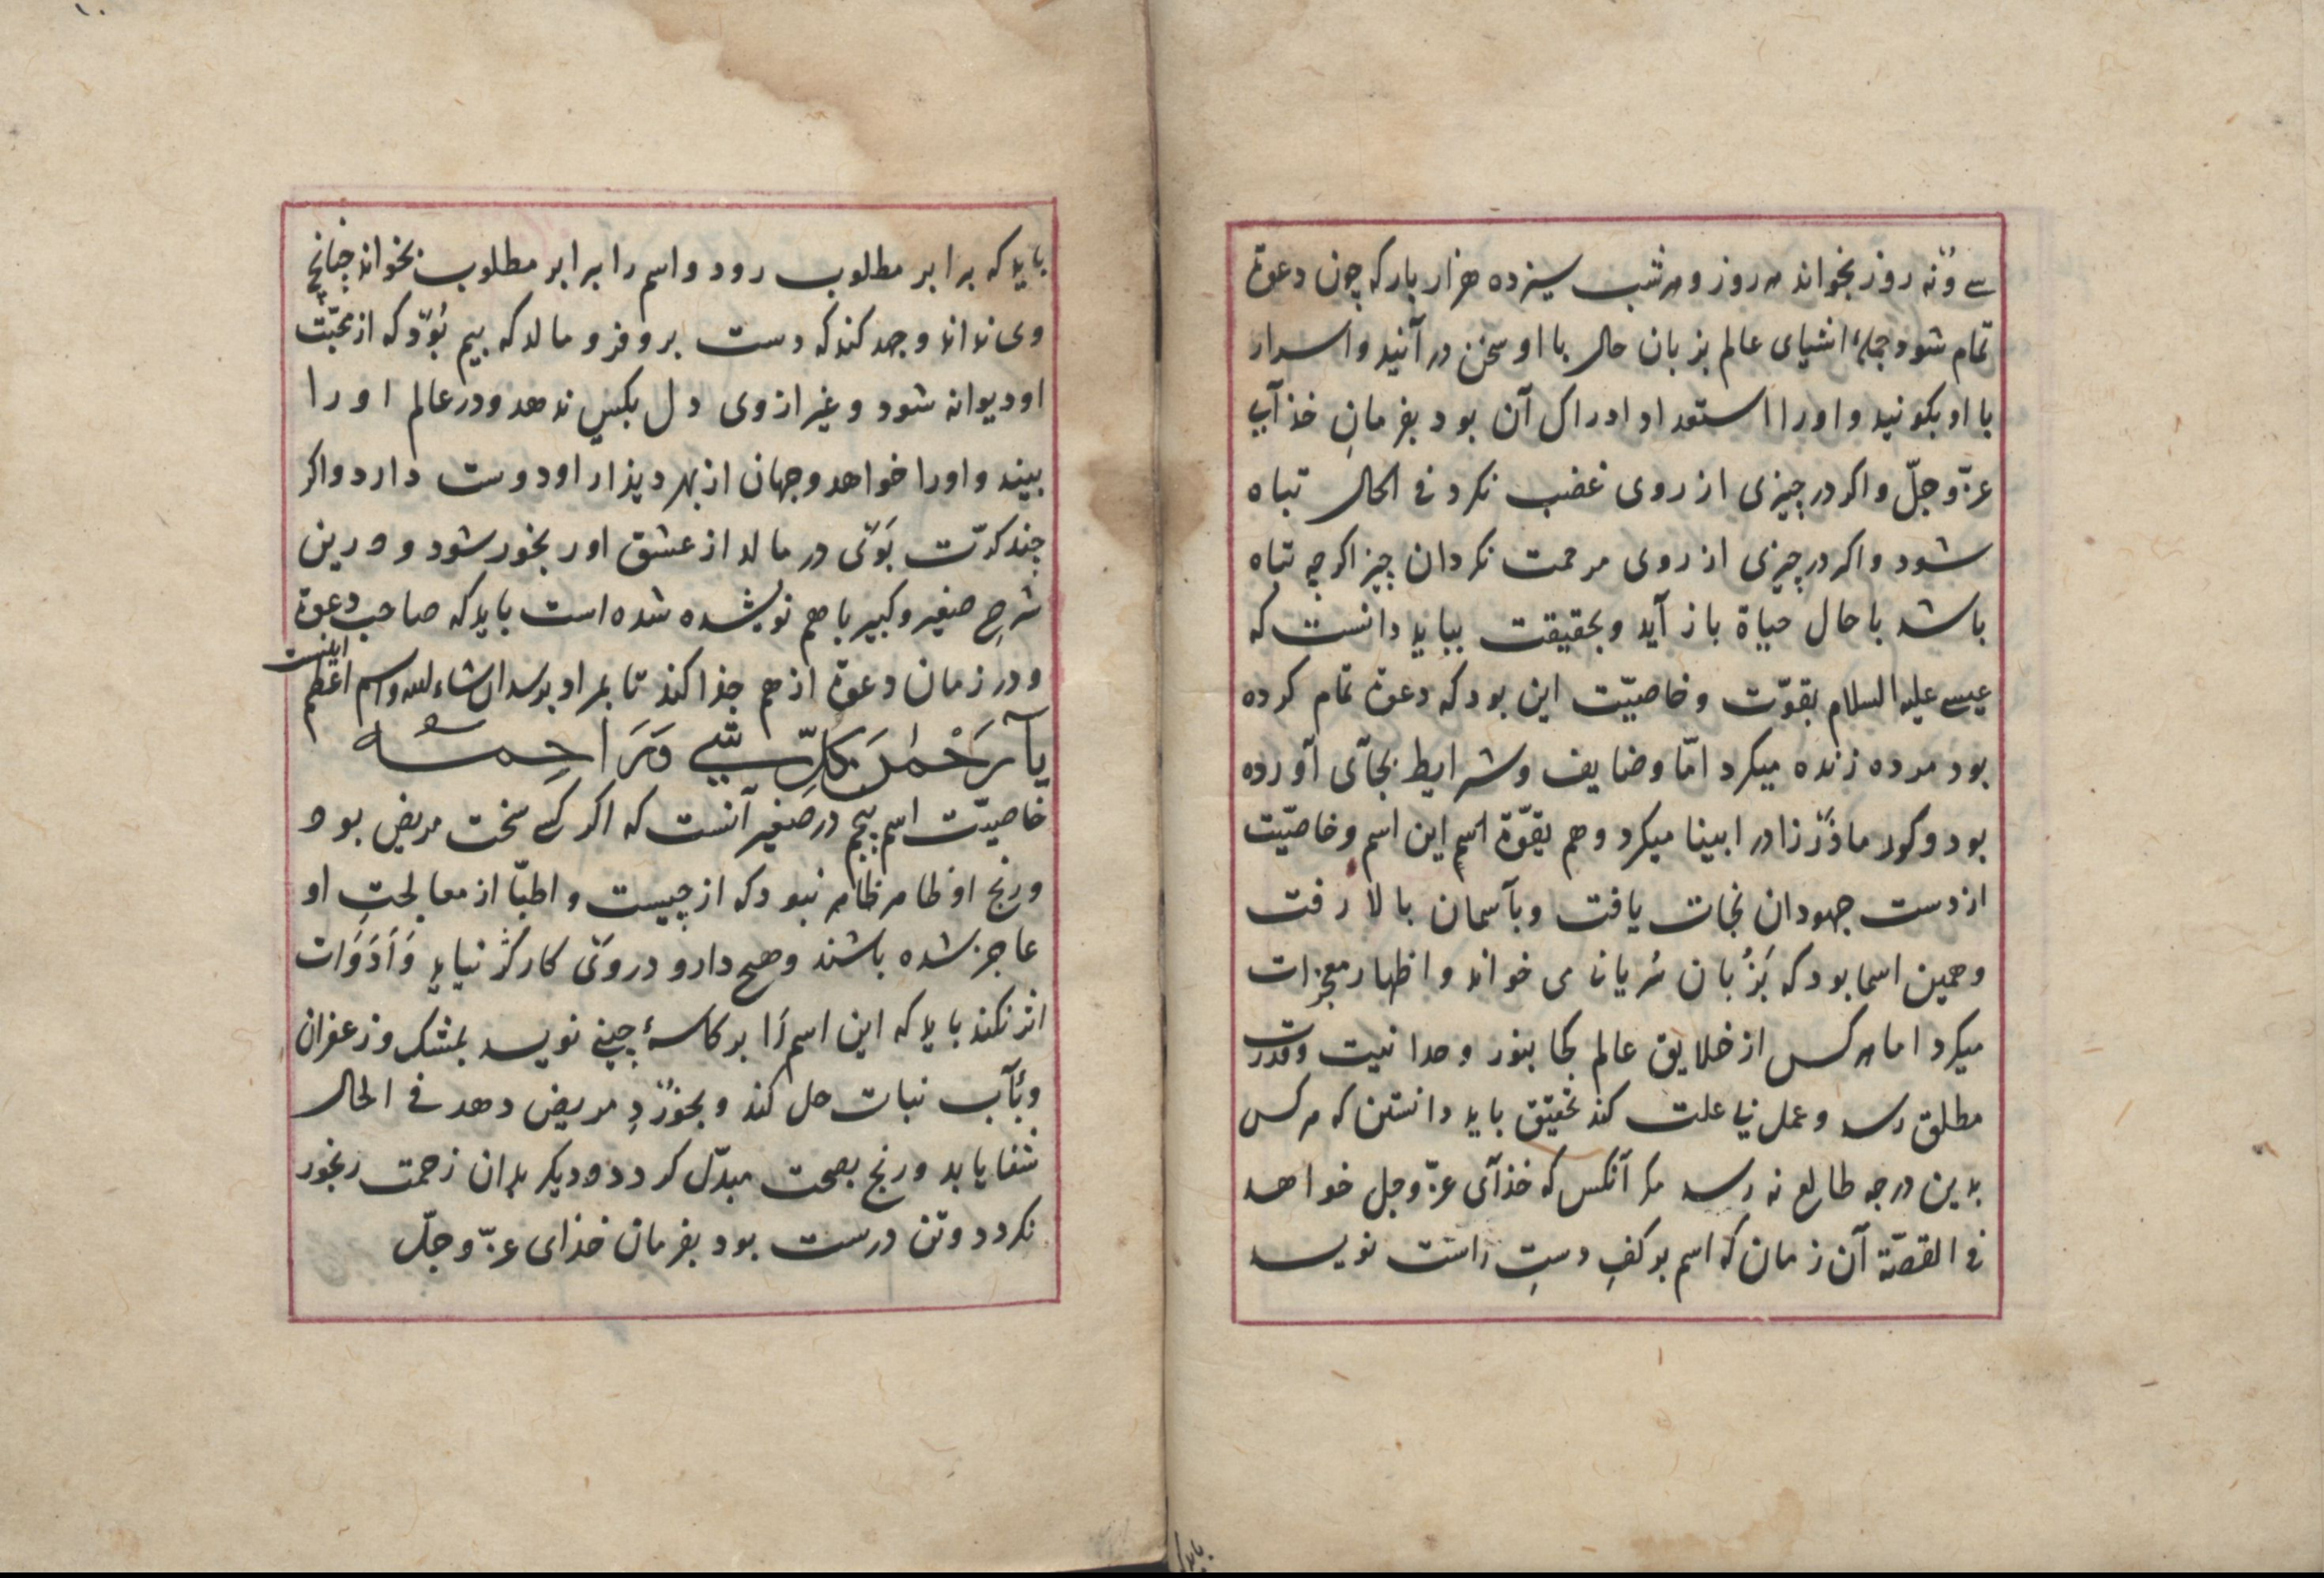 سے ونه روز بخواند هر روز و هر شب سیزده هزار بار که چون دعوة
تمام شود جملهٔ اشیای عالم بزبان حال با او سخن در آنید و اسرار
با او بکونید و او را استعداد ادراک آن بود بفرمانِ خذآیی
عزّ و جلّ و اکر در چیزی از روی غضب نکرد فی الحال تباه
شود و اکر در چیزی از روی مرحمت نکرد آن چیز اکرچه تباه
باشد با حال حیاة باز آید و بحقیقت بباید دانست که
عیسے علیه السلام بقوّت و خاصیّت این بود که دعوة تمام کرده
بود مرده زنده میکرد امّا وضایف و شرایط بجآی آورده
بود و کور ماذر زاد را بینا میکرد و هم بقوّة اسم این اسم و خاصیّت
از دست جهودان نجات یافت و بآسمان بالا رفت
و همین اسما بود که بزُبان سُریانی می خواند و اظهار معجزات
میکرد اما هر کس از خلایق عالم کجا بنور وحدانیت و قدرت
مطلق رسد و عمل بی علت کند تحقیق باید دانستن که هر کس
بدین درجه طالع نه رسد مکر آنکس که خذآی عزّ و جل خواهد
فی القصّة آن زمان که اسم بر کفِ دستِ راست نویسد
باید که
باید که برابر مطلوب رود و اسم را برابر مطلوب بخواند چنانچ
وی نداند و جهد کند که دست بر وی فرو مالد که بیم بُوَد که از محبّت
او دیوانه شود و غیر از وی دل بکس ندهد و در عالم او را
بیند و او را خواهد و جهان از بهر دیذار او دوست دارد و اکر
چند کرّت بَوَی در مالد از عشق او رنجور شود و درین
شرحِ صغیر و کبیر با هم نویشده شده است باید که صاحب دعوة
و در زمان دعوة از هم جذا کند تا بمراد برسد ان شاء الله و اسم اعظم اینست
یَا رَحْمٰنَ کُلِّ شَیْءٍ وَرَاحِمُهُ
خاصیّت اسم پنجم در صغیر آنست که اکر کسے سخت مریض بود
و رنج او ظاهر ظاهر نبود که از چیست و اطبّا از معالجتِ او
عاجز شده باشند و هیچ دارو در وی کارکر نیاید وَاَدَوَات
اثر نکند باید که این اسم را بر کاسهٔ چینے نویسد بمشک و زعفران
و بآب نبات حل کند و بخورْدِ مریض دهد فی الحال
شفا یابد و رنج بصحت مبدّل کردد و دیکر بدان زحمت رنجور
نکردد و تن درست بود بفرمان خذای عزّ و جلّ